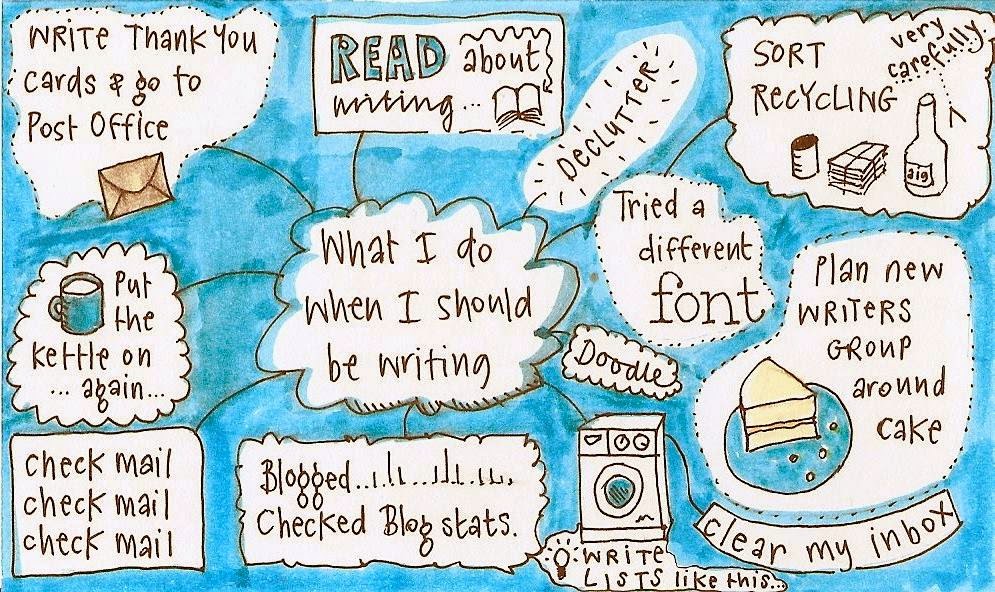 WRITE Thank You
cards & go to
Post Office
READ about
writing...
DECLUTTER
SORT
RECYCLING
very
carefully.
aig
What I do
when I should
be writing
Tried a
different
font
Plan new
WRITERS
GROUP
around
cake
Put
the
kettle on
... again...
Doodle
check mail
check mail
check mail
Blogged
Checked Blog stats.
clear my inbox
WRITE
LISTS like this...